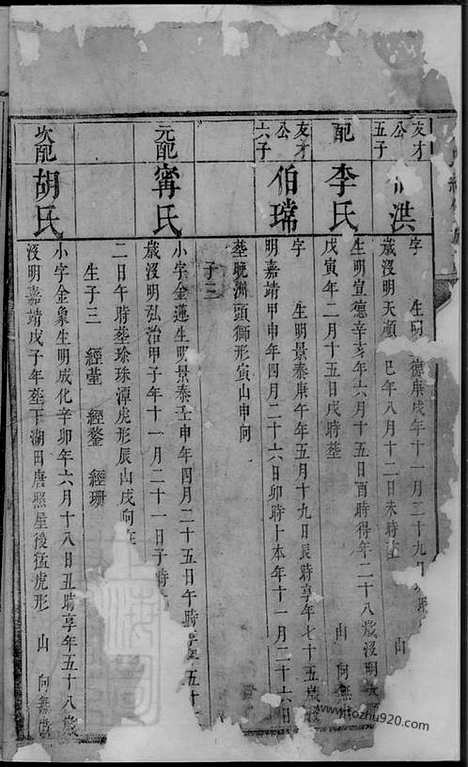 友才公五子
洪
字 生明 德庚戌年十一月二十九日
歲沒明天順 巳年八月十二日未時 山
配
李氏
生明宣德辛亥年六月十五日酉時得年二十八歲沒明天順
戊寅年二月十五日戌時塟 山 向無
友才公六子
伯瑺
字 生明景泰庚午年五月十九日辰時享年七十五歲
明嘉靖甲申年四月二十六日卯時 本年十一月二十六日
塟 洲頭獅形寅山申向
子三
元配
甯氏
小字金蓮生明景泰壬申年四月二十五日午時享年五十
歲沒明弘治甲子年十一月二十一日子時
二日午時塟 珠潭虎形辰山戌向
生子三 經 經 經珊
次配
胡氏
小字金象生明成化辛卯年六月十八日丑時享年五十八歲
沒明嘉靖戊子年塟下湖田唐照屋後猛虎形 山 向無
www.tozhu920.com